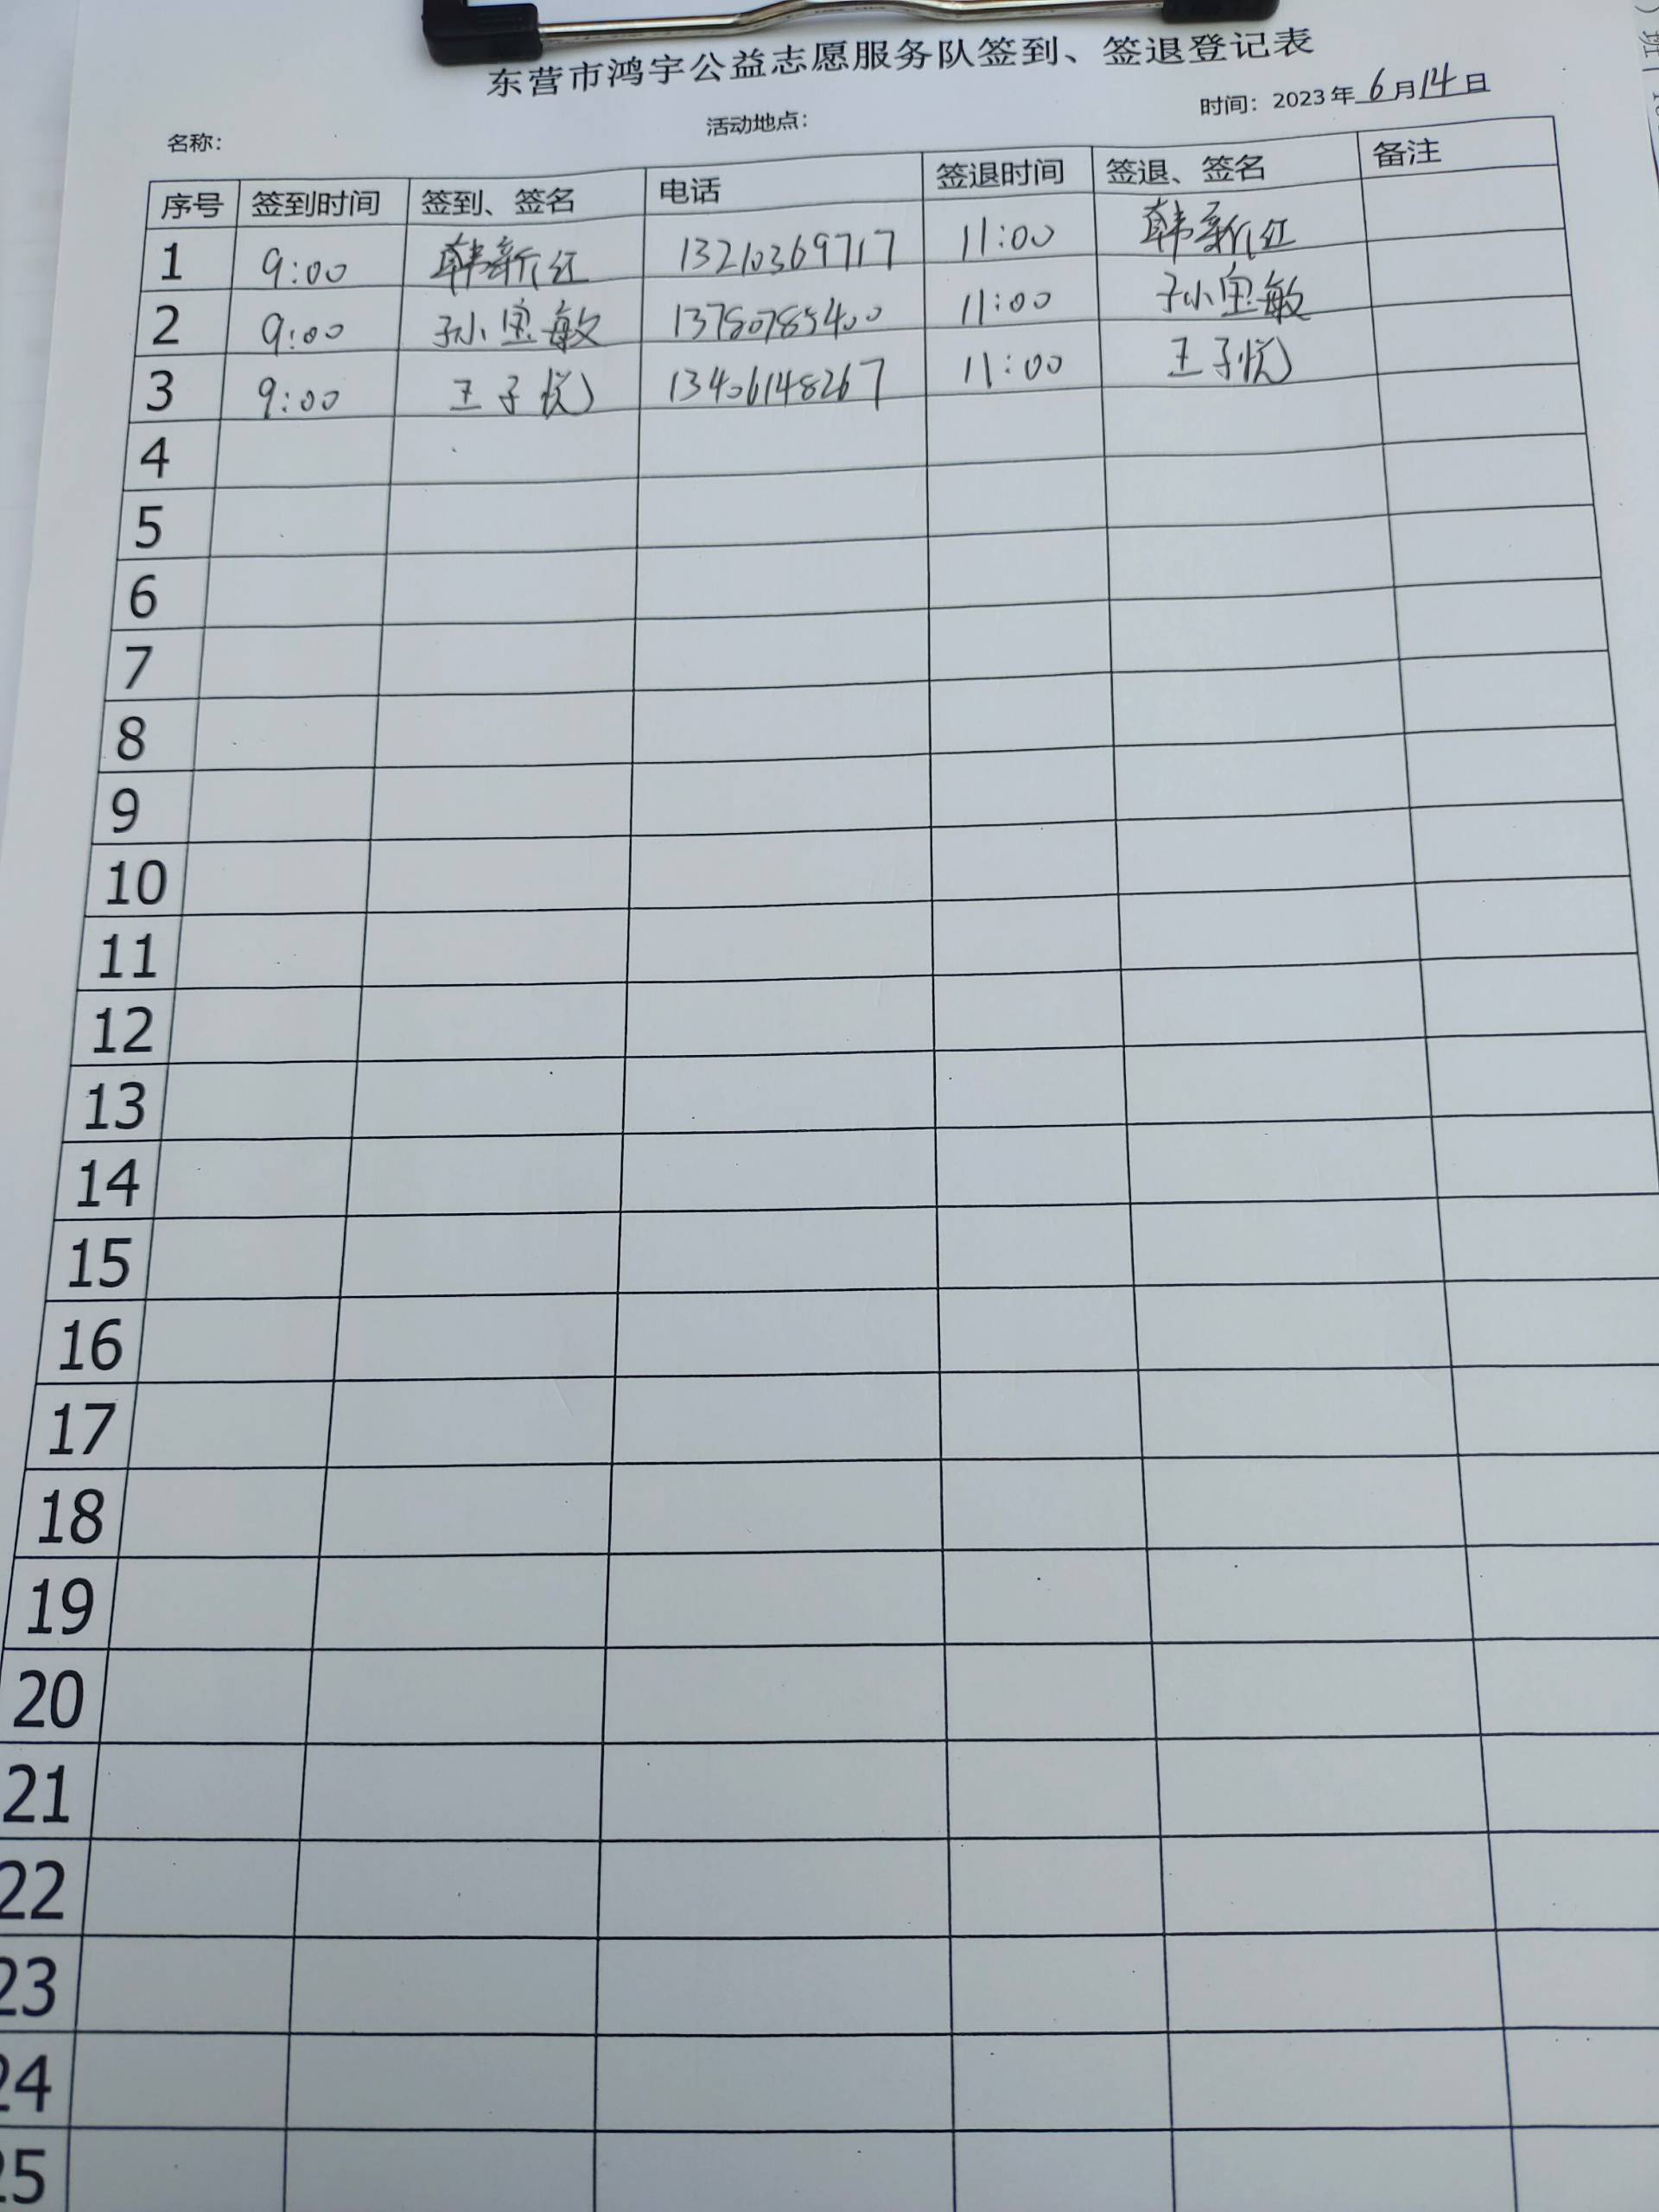 东营市鸿宇公益志愿服务队签到、签退登记表
名称： 活动地点： 时间：2023年6月14日
序号 签到时间 签到、签名 电话 签退时间 签退、签名 备注
1 9:00 韩新红 13210369717 11:00 韩新红
2 9:00 孙宝敏 13780785400 11:00 孙宝敏
3 9:00 王子悦 13406148267 11:00 王子悦
4
5
6
7
8
9
10
11
12
13
14
15
16
17
18
19
20
21
22
23
24
25